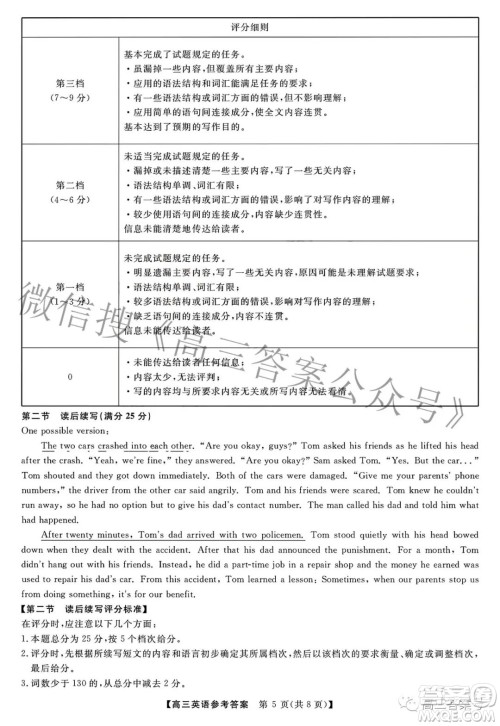 评分细则
第三档
(7～9分)
基本完成了试题规定的任务。
·虽漏掉一些内容，但覆盖所有主要内容；
·应用的语法结构和词汇能满足任务的要求；
·有一些语法结构或词汇方面的错误，但不影响理解；
·应用简单的语句间连接成分，使全文内容连贯。
基本达到了预期的写作目的。
第二档
(4～6分)
未适当完成试题规定的任务。
·漏掉或未描述清楚一些主要内容，写了一些无关内容；
·语法结构单调、词汇有限；
·有一些语法结构或词汇方面的错误，影响了对写作内容的理解；
·较少使用语句间的连接成分，内容缺少连贯。
信息未能清楚地传达给读者。
第一档
(1～3分)
未完成试题规定的任务。
·明显遗漏主要内容，写了一些无关内容，原因可能是未理解试题要求；
·语法结构单调、词汇有限；
·较多语法结构或词汇方面的错误，影响对写作内容的理解；
·缺乏语句间的连接成分，内容不连贯。
信息未能传达给读者。
0
·未能传达给读者任何信息；
·内容太少，无法评判；
·写的内容均与所要求内容无关或无法看清。
第二节 读后续写(满分25分)
One possible version:
The two cars crashed into each other. “Are you okay, guys?” Tom asked his friends as he lifted his head
after the crash. “Yeah, we're fine,” they answered. “Are you okay?” Sam asked Tom. “Yes. But the car...”
Tom shouted and sighed immediately. Both of the cars were damaged. “Give me your parents' phone
numbers,” the driver from the other car said angrily. Tom and his friends were scared. Tom knew he couldn't
run away, so he had no option but to give his dad's contact number. The man called his dad and told him what
had happened.
After twenty minutes, Tom's dad arrived with two policemen. Tom stood quietly with his head bowed
down when they dealt with the accident. After that his dad announced the punishment. For a month, Tom
didn't hang out with his friends. Instead, he did a part-time job in a repair shop and the money he earned was
used to repair his dad's car. From this accident, Tom learned a lesson: Sometimes, when our parents stop us
from doing something, it's for our benefit.
【第二节 读后续写评分标准】
在评分时，应注意以下几个方面：
1.本题总分为25分，按5个档次给分。
2.评分时，先根据所续写短文的内容和语言初步确定其所属档次，然后以该档次的要求来衡量、确定或调整档次，最后给分。
3.词数少于130的，从总分中减去2分。
【高三英语参考答案 第5页(共8页)】
微信搜《高三答案公众号》
高三答案号